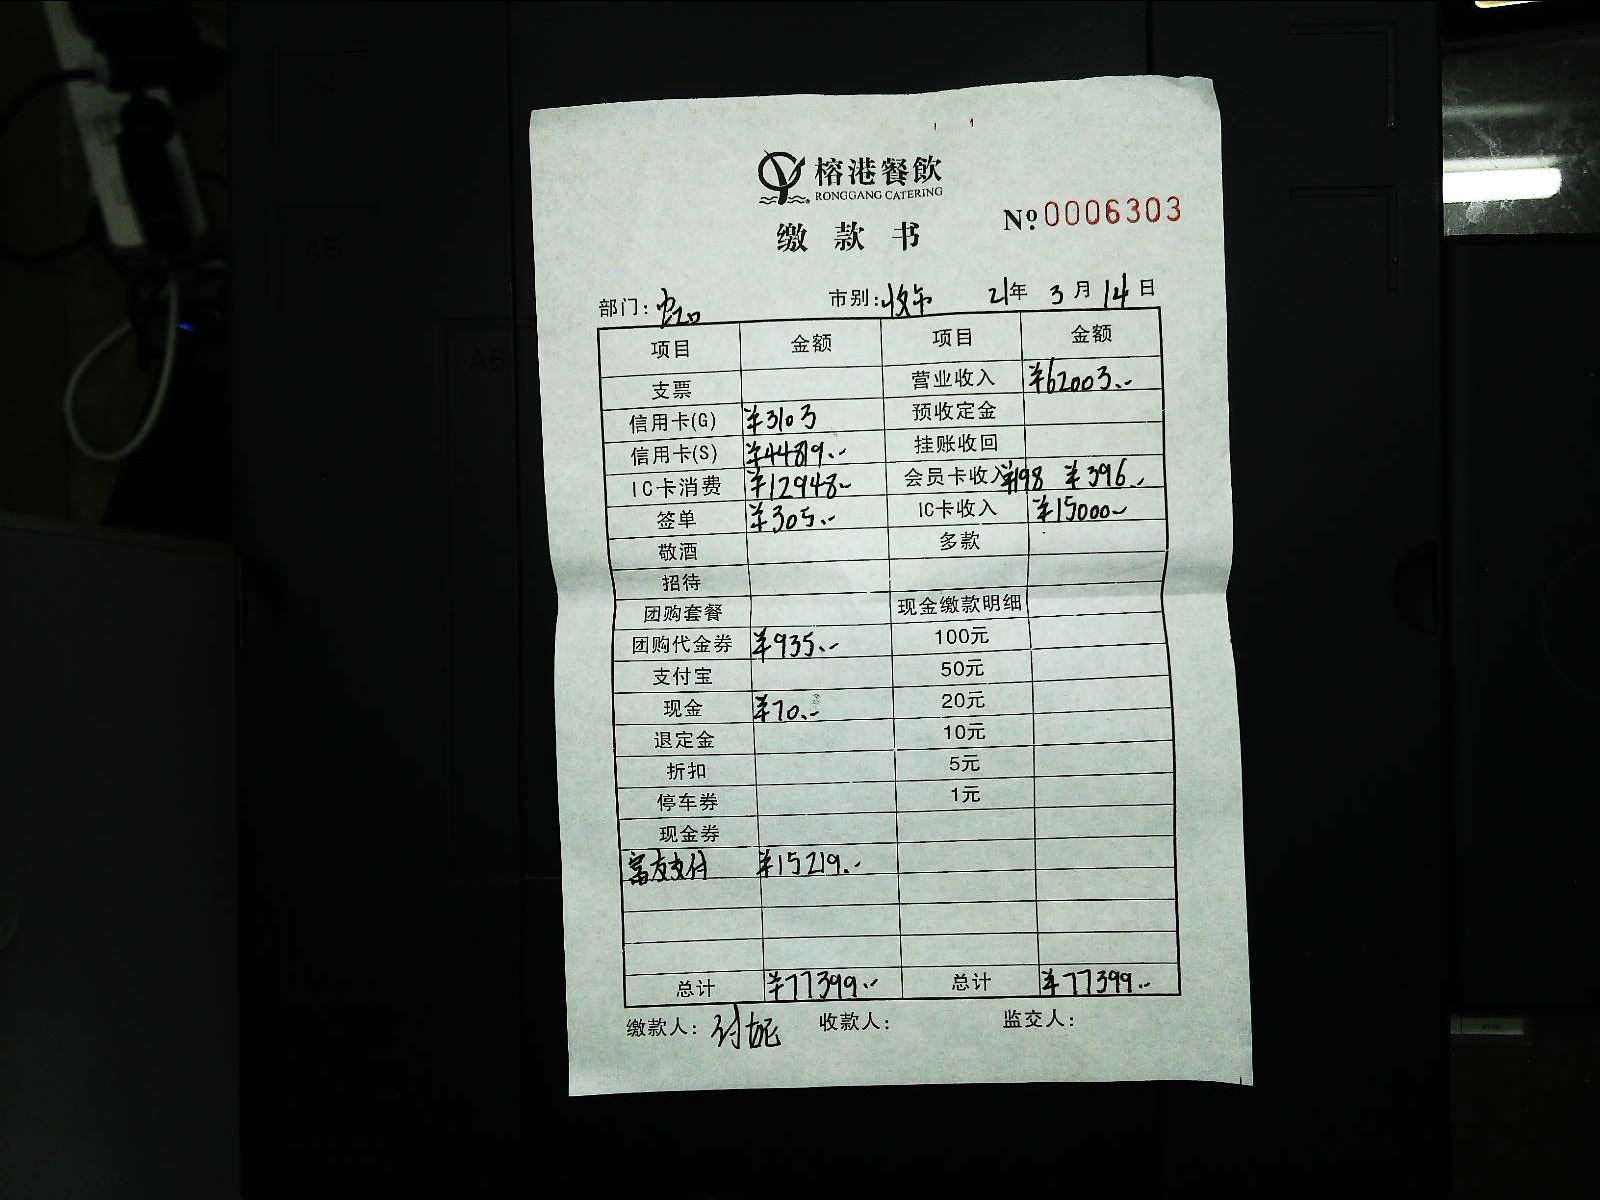 榕港餐飲
RONGGANG CATERING
缴款书
№ 0006303
部门: 市别: 21年 3月 14日
项目 金额 项目 金额
支票 营业收入 ¥62003.-
信用卡(G) ¥3103 预收定金
信用卡(S) ¥44819.- 挂账收回
IC卡消费 ¥12948- 会员卡收入 ¥198 ¥396.-
签单 ¥305.- IC卡收入 ¥15000-
敬酒 多款
招待
团购套餐 现金缴款明细
团购代金券 ¥935.- 100元
支付宝 50元
现金 ¥70.- 20元
退定金 10元
折扣 5元
停车券 1元
现金券
富友支付 ¥15219.-
总计 ¥77399.- 总计 ¥77399.-
缴款人: 付妮 收款人: 监交人: